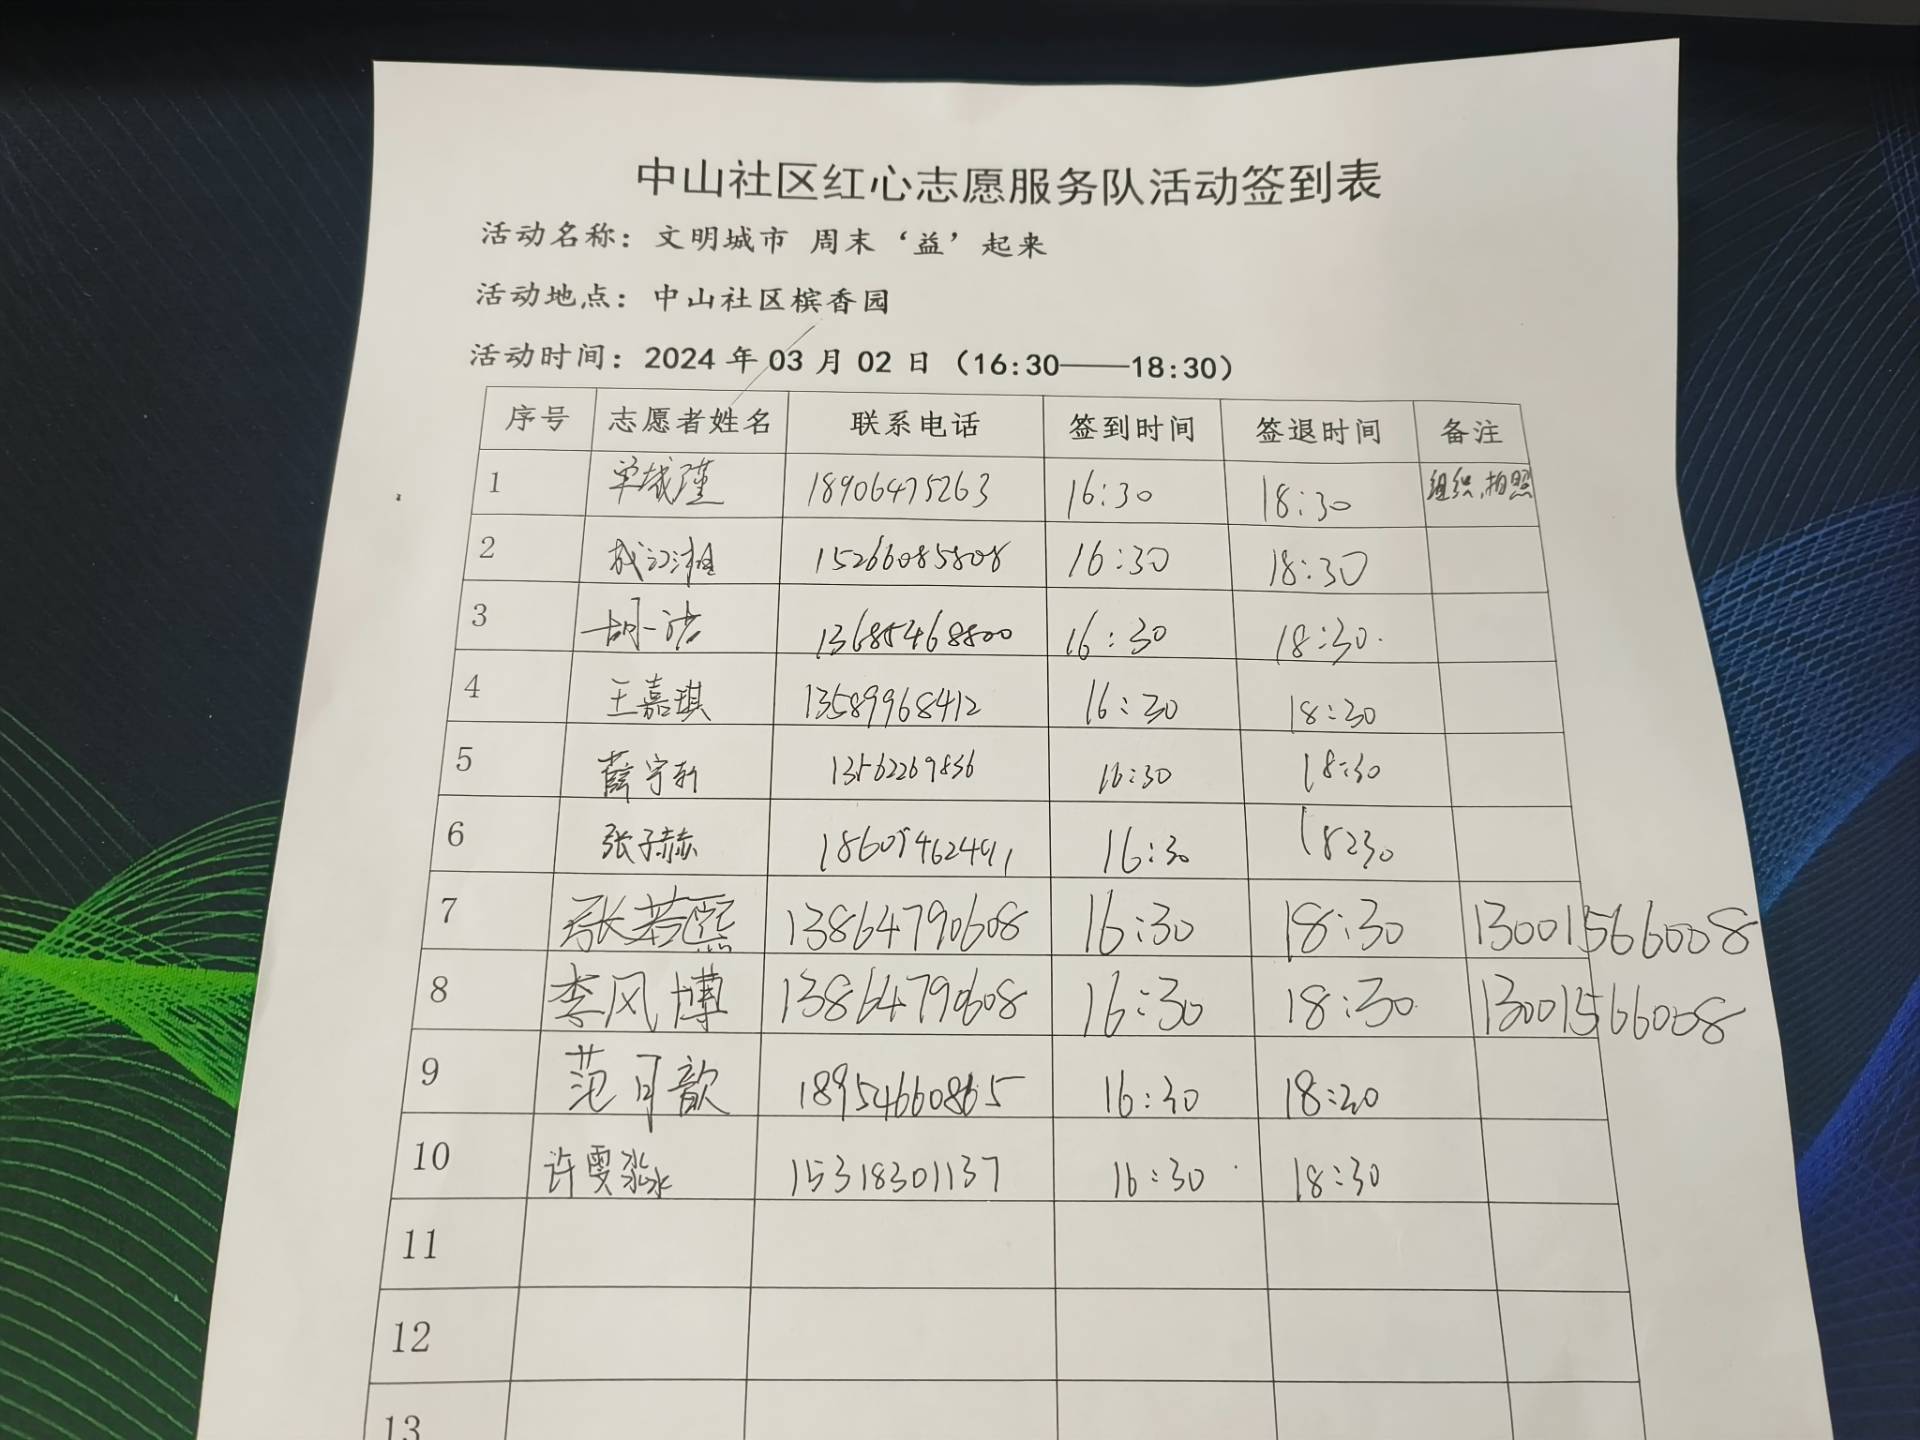 中山社区红心志愿服务队活动签到表
活动名称：文明城市 周末‘益’起来
活动地点：中山社区槟香园
活动时间：2024 年 03 月 02 日（16:30——18:30）
序号 志愿者姓名 联系电话 签到时间 签退时间 备注
1 单城瑾 18906475263 16:30 18:30 组织、拍照
2 成江湘 15266085808 16:30 18:30
3 胡一诺 13685468800 16:30 18:30
4 王嘉琪 13589968412 16:30 18:30
5 薛宇轩 13562269836 16:30 18:30
6 张子赫 16:30 18:30
7 张若熙 13864790608 16:30 18:30 13001566008
8 李风博 13864790608 16:30 18:30 13001566008
9 范可歆 18954660865 16:30 18:30
10 许雯淼 15318301137 16:30 18:30
11
12
13